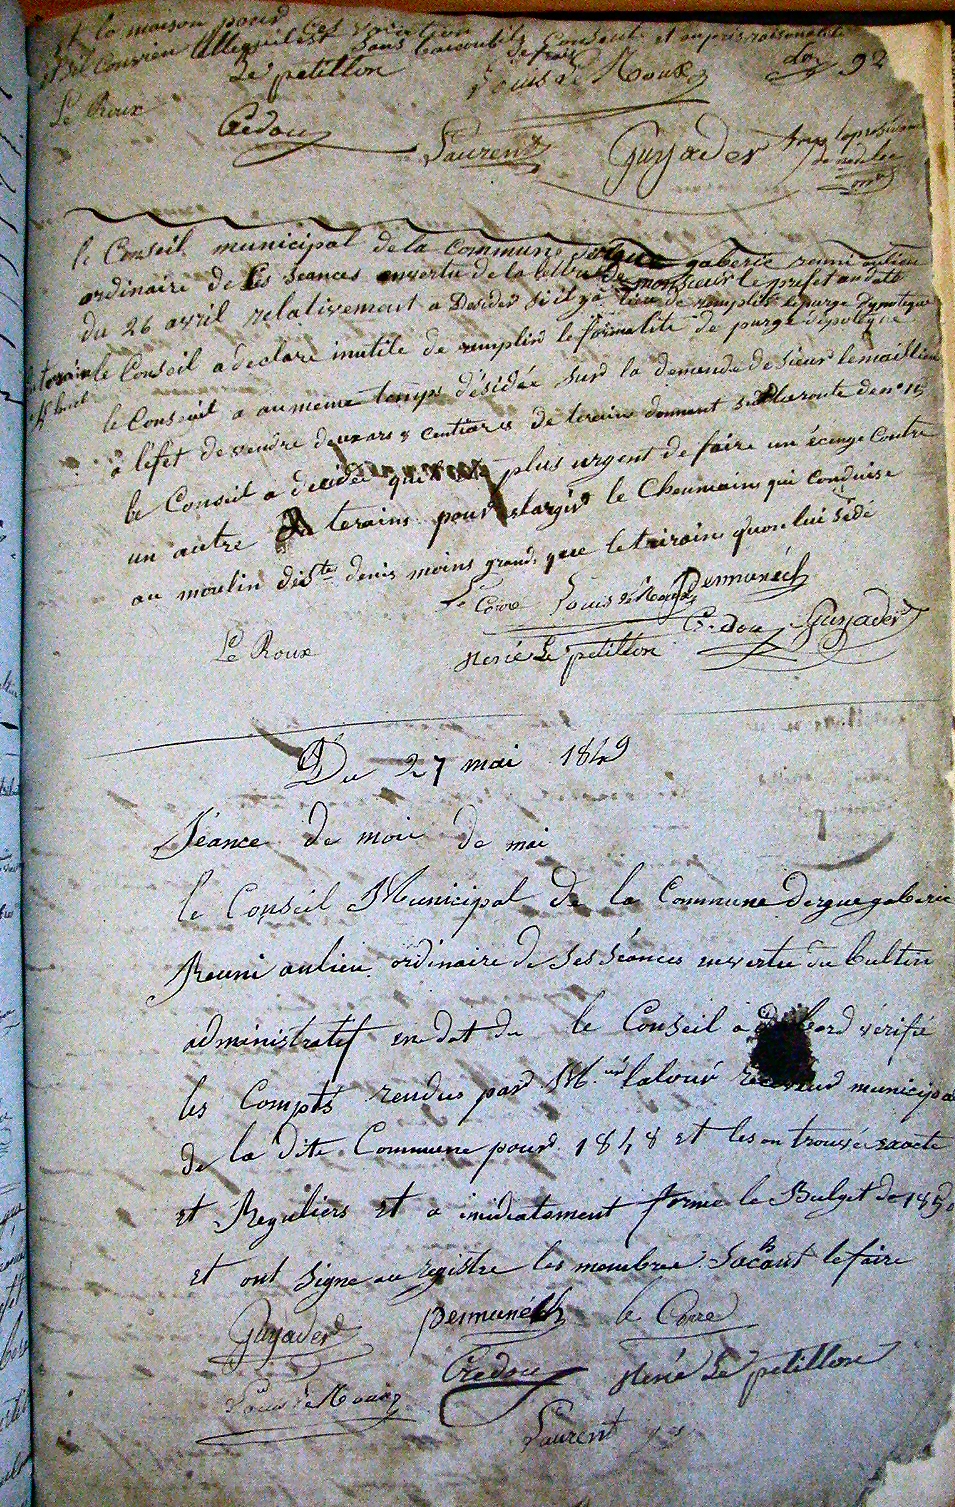 et la maison pour
et il convien
sans
consenti et au prix raisonable
de frais
Le petillon
Louis Le Roux
92
Le Roux
Credou
Laurent
Guyader
le Conseil municipal de la Commune gaberic reuni au lieu
ordinaire de ses seances en vertu de la lettre de monsieur le prefet en date
du 26 avril relativement a Desider si il y a lieu de remplir le purge
le Conseil a declaré inutile de remplir le formalité de purge
terain
le Conseil a au meme temps désidée sur la demande de sieur
a leffet de vendre deux ars 8 centiares de terain donnent sur la route de n° 15
le Conseil a decidé que plus urgent de faire un écenge Contre
un autre terains pour elargir le Cheumains qui conduise
au moulin de Ste denis moins grand, que le terains quon lui sédé
Le Corre Louis Le Roux Dennunéch
Credou Guyader
Le Roux
René Le petillon
Du 27 mai 1849
Séance de moic de mai
le Conseil Municipal de la Commune dergue gaberic
Reuni au lieu ordinaire de Ses Séances en vertu du bultin
administratif en dat du le Conseil a dabord vérifié
les Compts rendus par M. lalour receveur municipal
de la Dite Commune pour 1848 et les on trouvée exacte
et Reguliers et a imidiatement formé le Bulget de 1850
et ont Signe au registre les membres Sachant le faire
Guyader Dennunéch le Corre
Credou René Le petillon
Louis Le Roux
Laurent